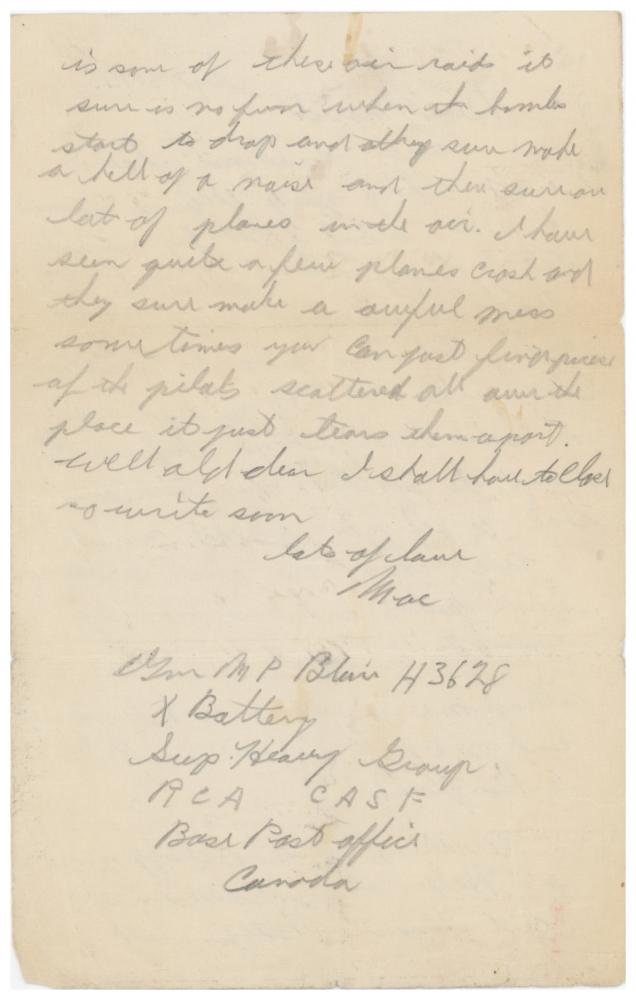 is some of these air raids it
sure is no fun when the bombs
start to drop and they sure make
a hell of a noise and then sure an
lot of planes in the air. I have
seen quite a few planes crash and
they sure make a awful mess
sometimes you can just find pieces
of the pilots scattered all over the
place it just tears them apart.
well old dear I shall have to close
so write soon
lots of love
Mac
Gnr M P Blair H3628
X Battery
Sup. Heavy Group.
R C A C A S F
Base Post office
Canada